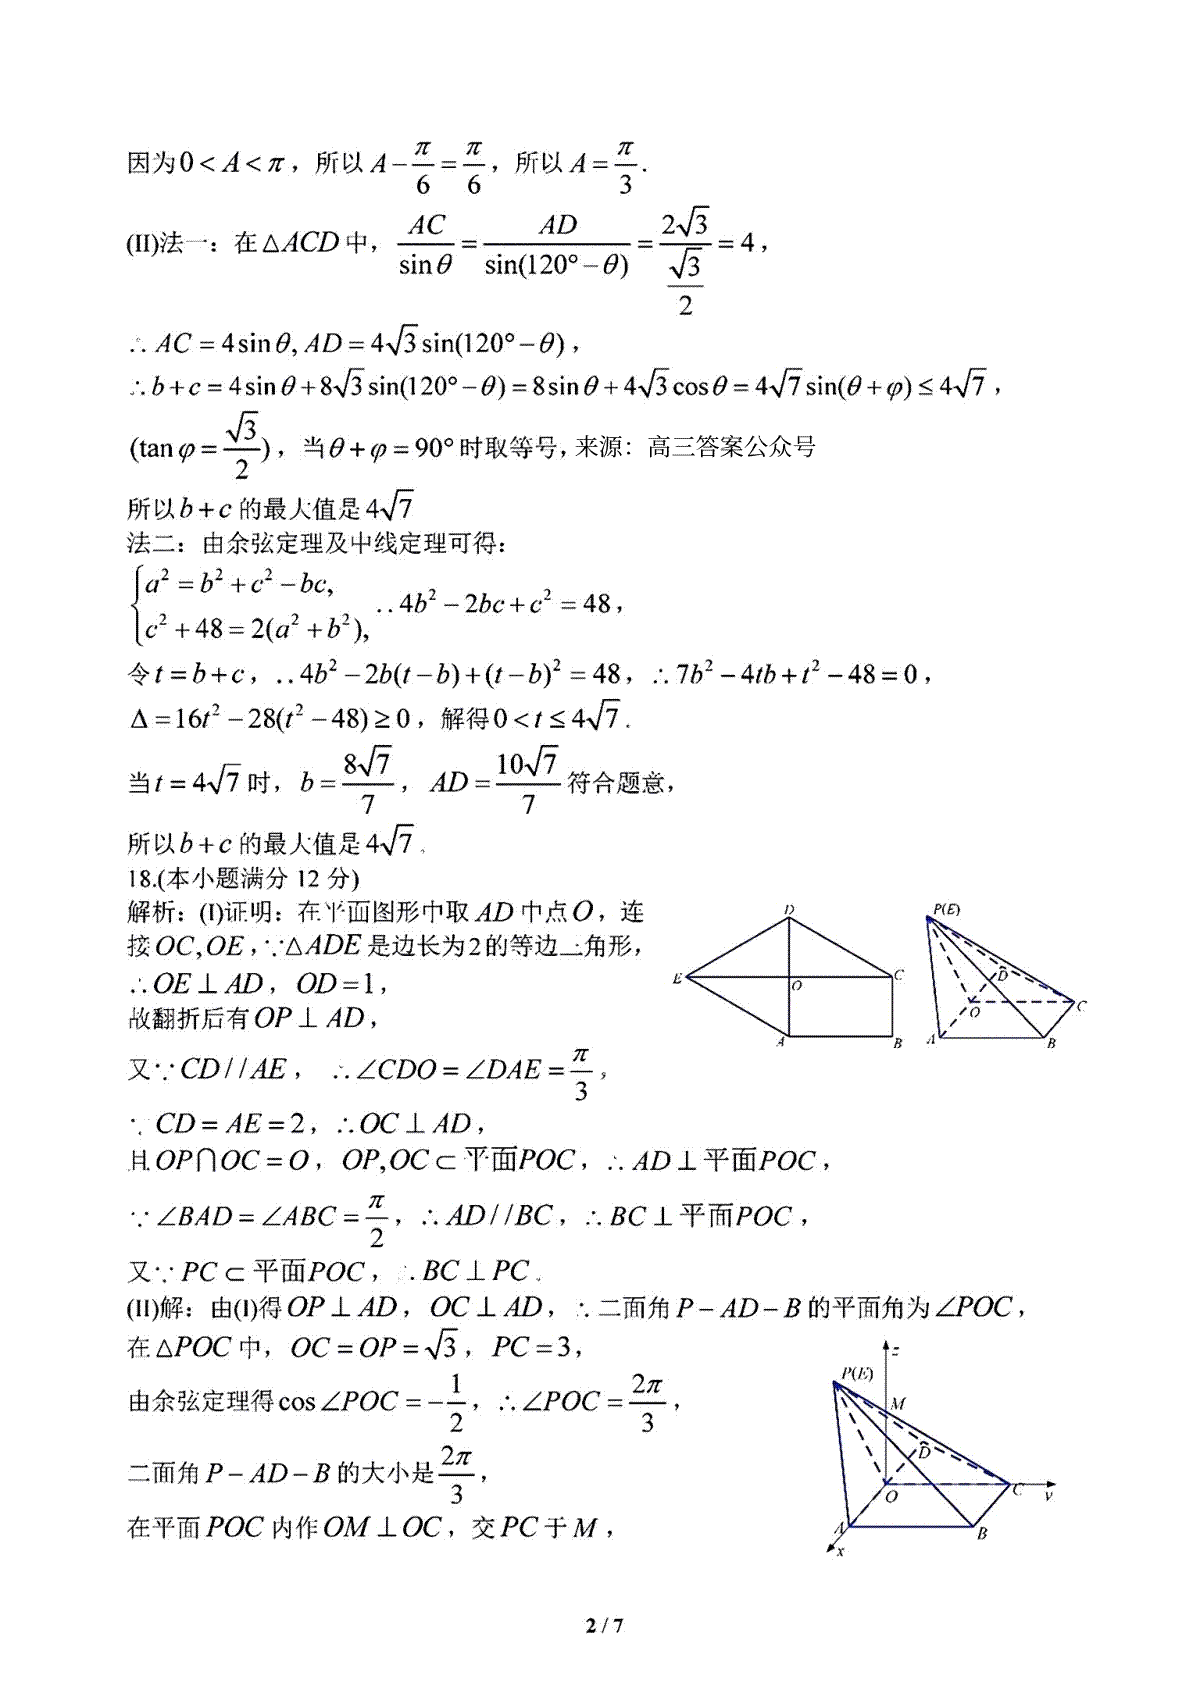 因为0 < A < π，所以 A − π/6 = π/6，所以 A = π/3.
(II)法一：在△ACD中，AC/sinθ = AD/sin(120° − θ) = 2√3/(√3/2) = 4，
∴ AC = 4sinθ, AD = 4√3 sin(120° − θ)，
∴ b + c = 4sinθ + 8√3 sin(120° − θ) = 8sinθ + 4√3 cosθ = 4√7 sin(θ + φ) ≤ 4√7，
(tanφ = √3/2)，当θ + φ = 90°时取等号，来源：高三答案公众号
所以b + c的最大值是4√7
法二：由余弦定理及中线定理可得：
{a² = b² + c² − bc,
c² + 48 = 2(a² + b²), ∴4b² − 2bc + c² = 48，
令t = b + c，∴4b² − 2b(t − b) + (t − b)² = 48，∴ 7b² − 4tb + t² − 48 = 0，
Δ = 16t² − 28(t² − 48) ≥ 0，解得0 < t ≤ 4√7.
当t = 4√7时，b = 8√7/7，AD = 10√7/7符合题意，
所以b + c的最大值是4√7。
18.(本小题满分 12 分)
解析：(I)证明：在平面图形中取AD中点O，连
接OC,OE，∵△ADE是边长为2的等边三角形，
∴OE⊥AD，OD=1，
故翻折后有OP⊥AD，
又∵CD//AE，∴∠CDO=∠DAE=π/3，
∵CD=AE=2，∴OC⊥AD，
且OP∩OC=O，OP,OC⊂平面POC，∴AD⊥平面POC，
∵∠BAD=∠ABC=π/2，∴AD//BC，∴BC⊥平面POC，
又∵PC⊂平面POC，∴BC⊥PC。
(II)解：由(I)得OP⊥AD，OC⊥AD，∴二面角P−AD−B的平面角为∠POC，
在△POC中，OC=OP=√3，PC=3，
由余弦定理得cos∠POC=−1/2，∴∠POC=2π/3，
二面角P−AD−B的大小是2π/3，
在平面POC内作OM⊥OC，交PC于M，
D
E
O
C
A
B
P(E)
D
O
C
A
B
z
P(E)
M
D
O
C
y
A
B
x
2 / 7